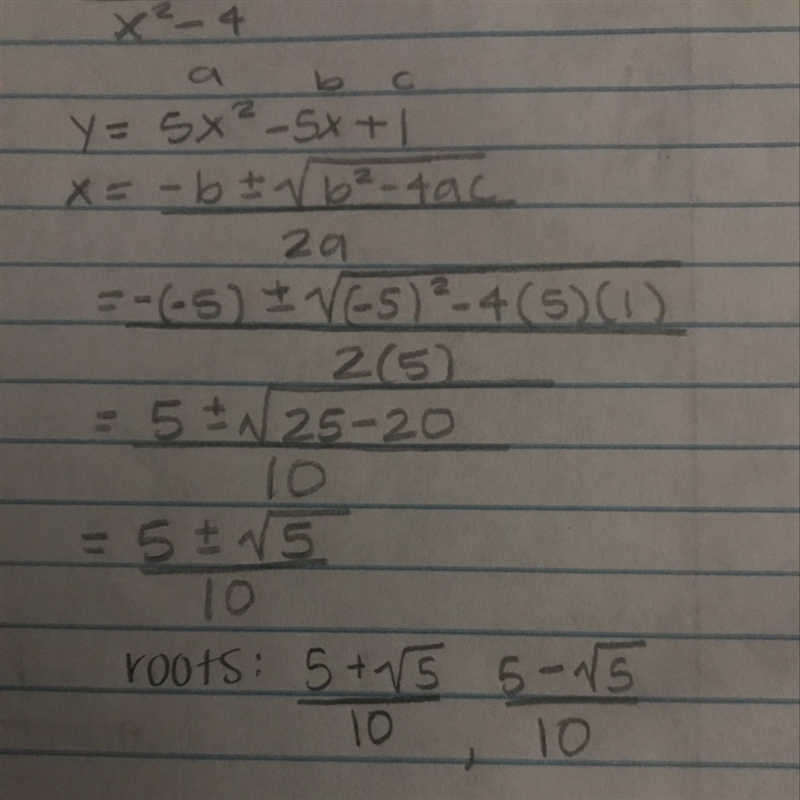 x² - 4
a b c
y = 5x² - 5x + 1
x = -b ± √(b² - 4ac)
2a
= -(-5) ± √((-5)² - 4(5)(1))
2(5)
= 5 ± √(25 - 20)
10
= 5 ± √5
10
roots: 5 + √5 5 - √5
10 , 10